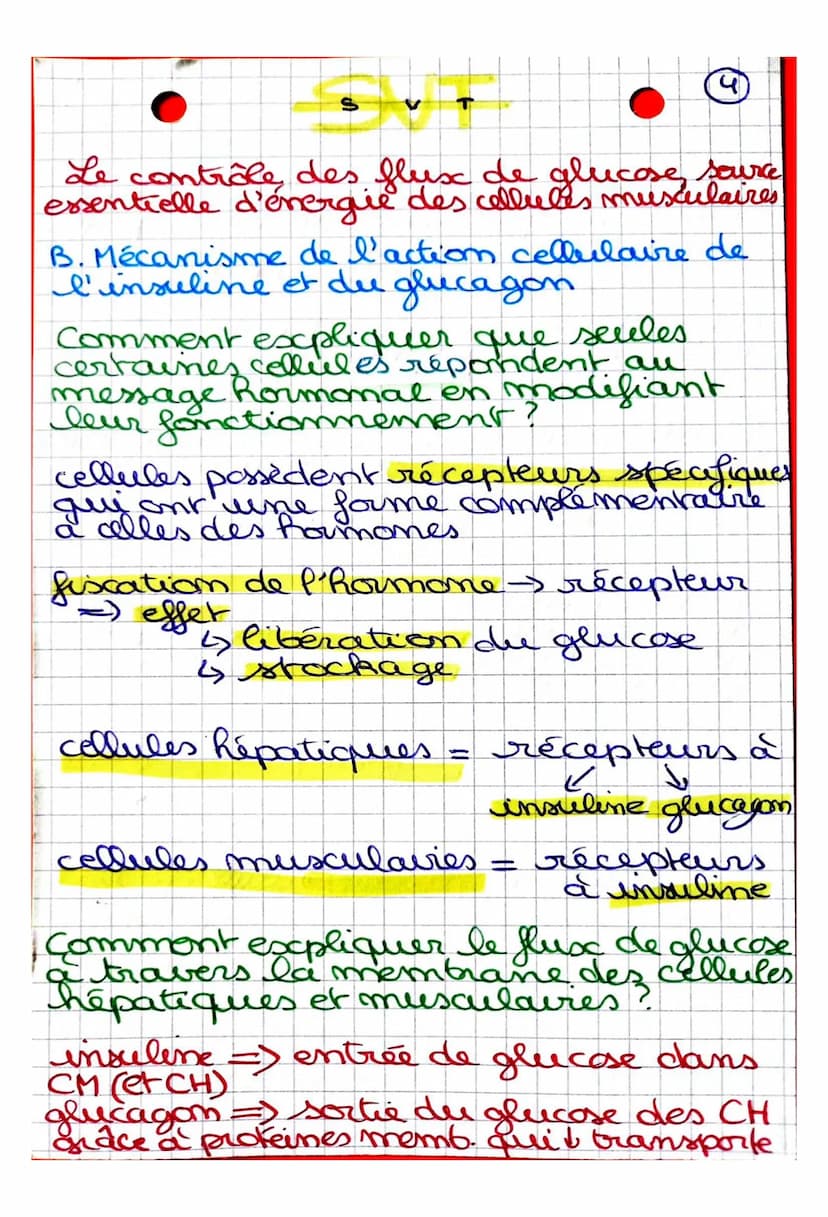 4
SVT
S V T
Le contrôle des flux de glucose, source
essentielle d'énergie des cellules musculaires
B. Mécanisme de l'action cellulaire de
l'insuline et du glucagon
Comment expliquer que seules
certaines cellules répondent au
message hormonal en modifiant
leur fonctionnement ?
cellules possèdent récepteurs spécifiques
qui ont une forme complémentaire
à celles des hormones
fixation de l'hormone → récepteur
=> effet
↳ libération du glucose
↳ stockage
cellules hépatiques = récepteurs à
↙ ↘
insuline glucagon
cellules musculaires = récepteurs
à insuline
Comment expliquer le flux de glucose
à travers la membrane des cellules
hépatiques et musculaires ?
insuline => entrée de glucose dans
CM (et CH)
glucagon => sortie du glucose des CH
grâce à protéines memb. qui transporte